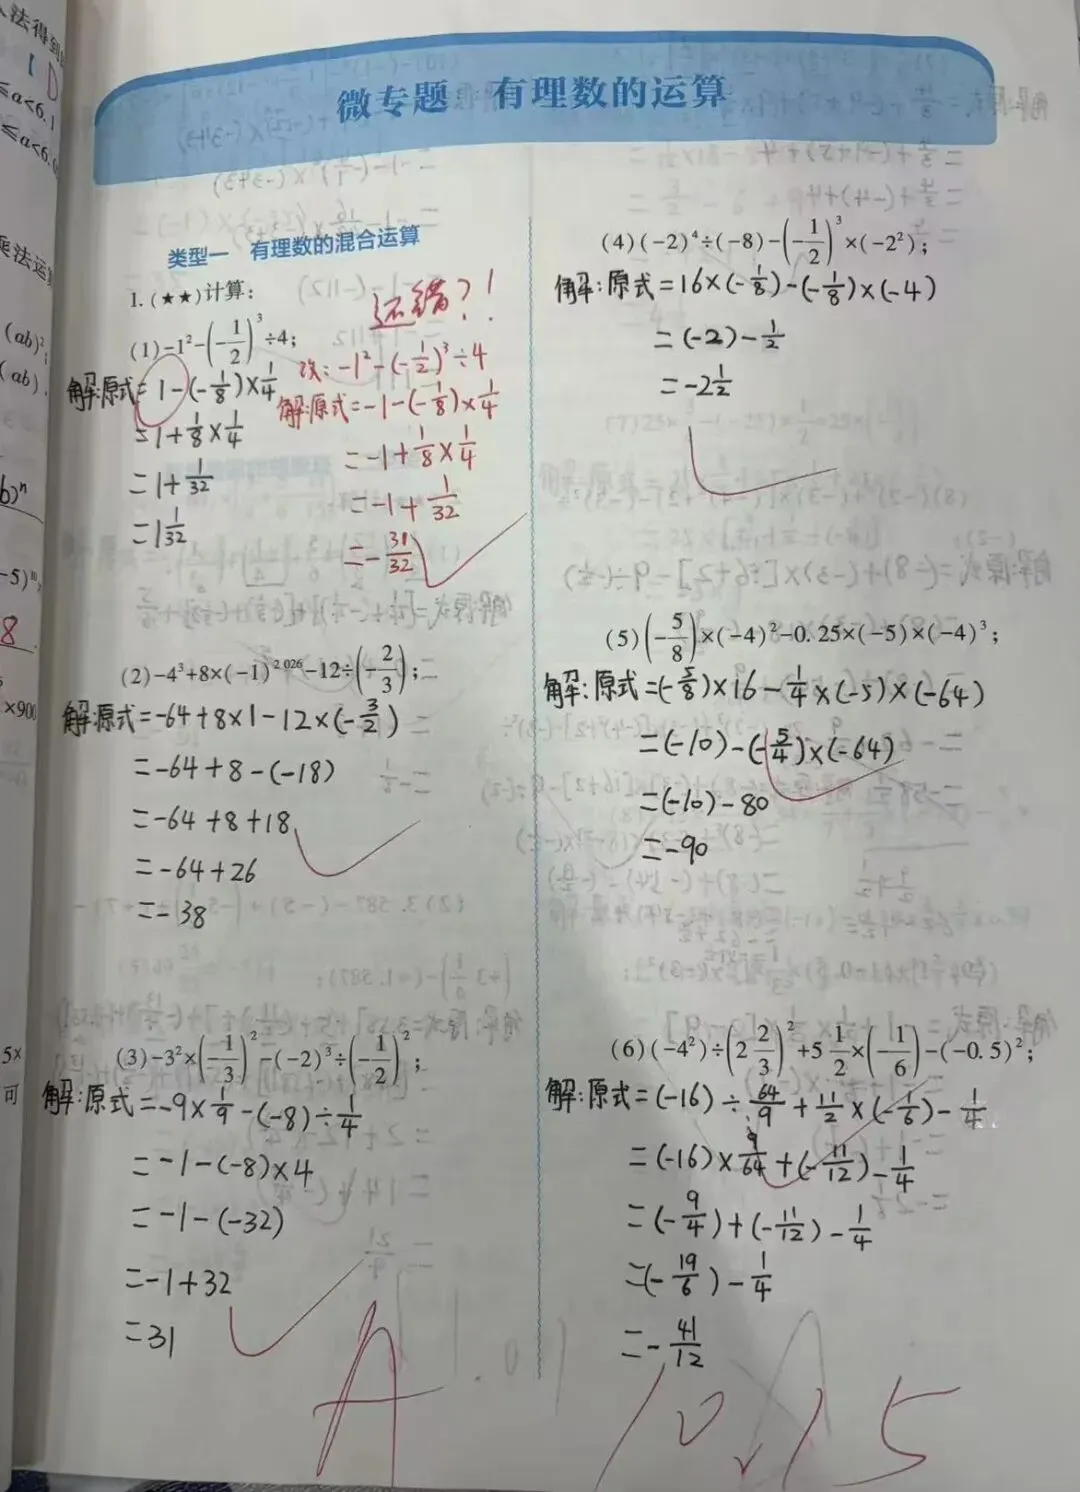 微专题 有理数的运算
类型一 有理数的混合运算
1.(★★)计算:
还错?!
(1)-1²-(-1/2)³÷4;
解:原式=1-(-1/8)×1/4
=1+1/8×1/4
=1+1/32
=1 1/32
改:-1²-(-1/2)³÷4
解:原式=-1-(-1/8)×1/4
=-1+1/8×1/4
=-1+1/32
=-31/32
(2)-4³+8×(-1)²⁰²⁶-12÷(-2/3);
解:原式=-64+8×1-12×(-3/2)
=-64+8-(-18)
=-64+8+18
=-64+26
=-38
(3)-3²×(-1/3)²-(-2)³÷(-1/2)²;
解:原式=-9×1/9-(-8)÷1/4
=-1-(-8)×4
=-1-(-32)
=-1+32
=31
(4)(-2)⁴÷(-8)-(-1/2)³×(-2²);
解:原式=16×(-1/8)-(-1/8)×(-4)
=(-2)-1/2
=-2 1/2
(5)(-5/8)×(-4)²-0.25×(-5)×(-4)³;
解:原式=(-5/8)×16-1/4×(-5)×(-64)
=(-10)-(-5/4)×(-64)
=(-10)-80
=-90
(6)(-4²)÷(2 2/3)²+5 1/2×(-1/6)-(-0.5)²;
解:原式=(-16)÷64/9+11/2×(-1/6)-1/4
=(-16)×9/64+(-11/12)-1/4
=(-9/4)+(-11/12)-1/4
=(-19/6)-1/4
=-41/12
A 10.15
法得到
≤a<6.1
≤a<6.
乘法运
(ab)²;
(ab).
8
×900
5×
可